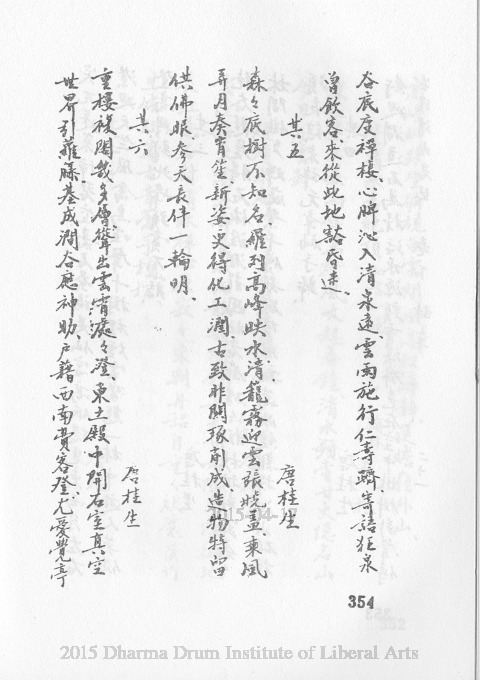 谷底度禪棲、心脾沁入清泉遠、雲雨施行仁壽躋、寄語狂泉
曾飲客、求從此地豁昏迷、
其五
唐桂生
森々底樹不知名、羅列高峰映水清、籠霧迎雲張曉蓋、乘風
弄月奏宵笙、新姿更得化工潤、古致非關琢削成、造物特留
供佛眼、參天長伴一輪明、
其六
唐桂生
重樓複閣幾多層、聳出雲霄處々澄、東土殿中開石室、真空
世界引蘿藤、基成澗谷應神助、戶籍西南費客登、尤愛覺亭
354
2015 Dharma Drum Institute of Liberal Arts